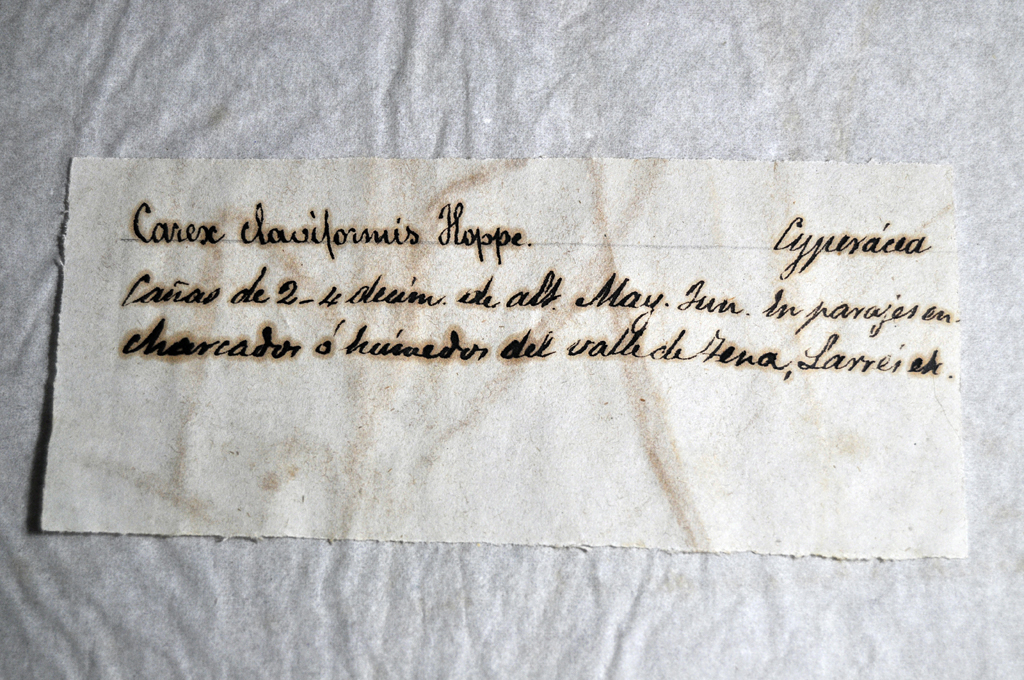 Carex claviformis Hoppe. Cyperácea
Cañas de 2-4 decím. de alt. May. Jun. In parajes en-
charcados ó húmedos del valle de Tena, Larrés etc.